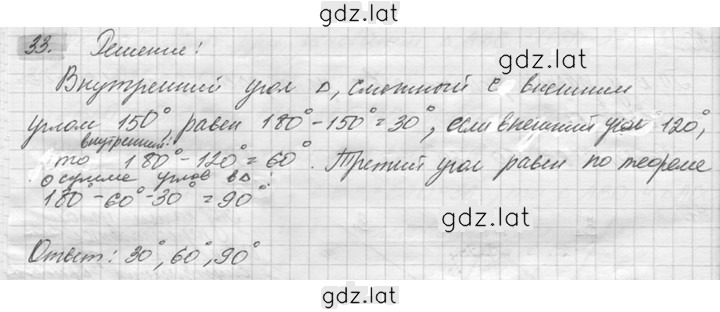 gdz.lat
33. Решение:
gdz.lat
Внутренний угол Δ, смежный с внешним
углом 150° равен 180°-150°=30°, если внешний угол 120°,
внутренний:
то 180°-120°=60°. Третий угол равен по теореме
о сумме углов в Δ:
180°-60°-30°=90°
gdz.lat
Ответ: 30°, 60°, 90°
gdz.lat